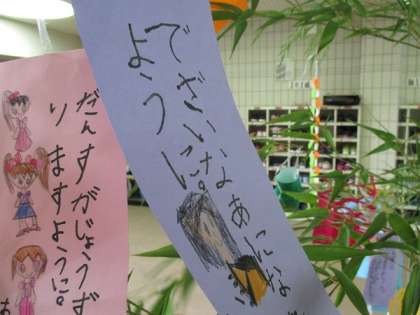 でざいなあにな
ように。
だんすがじょうず
りますように。